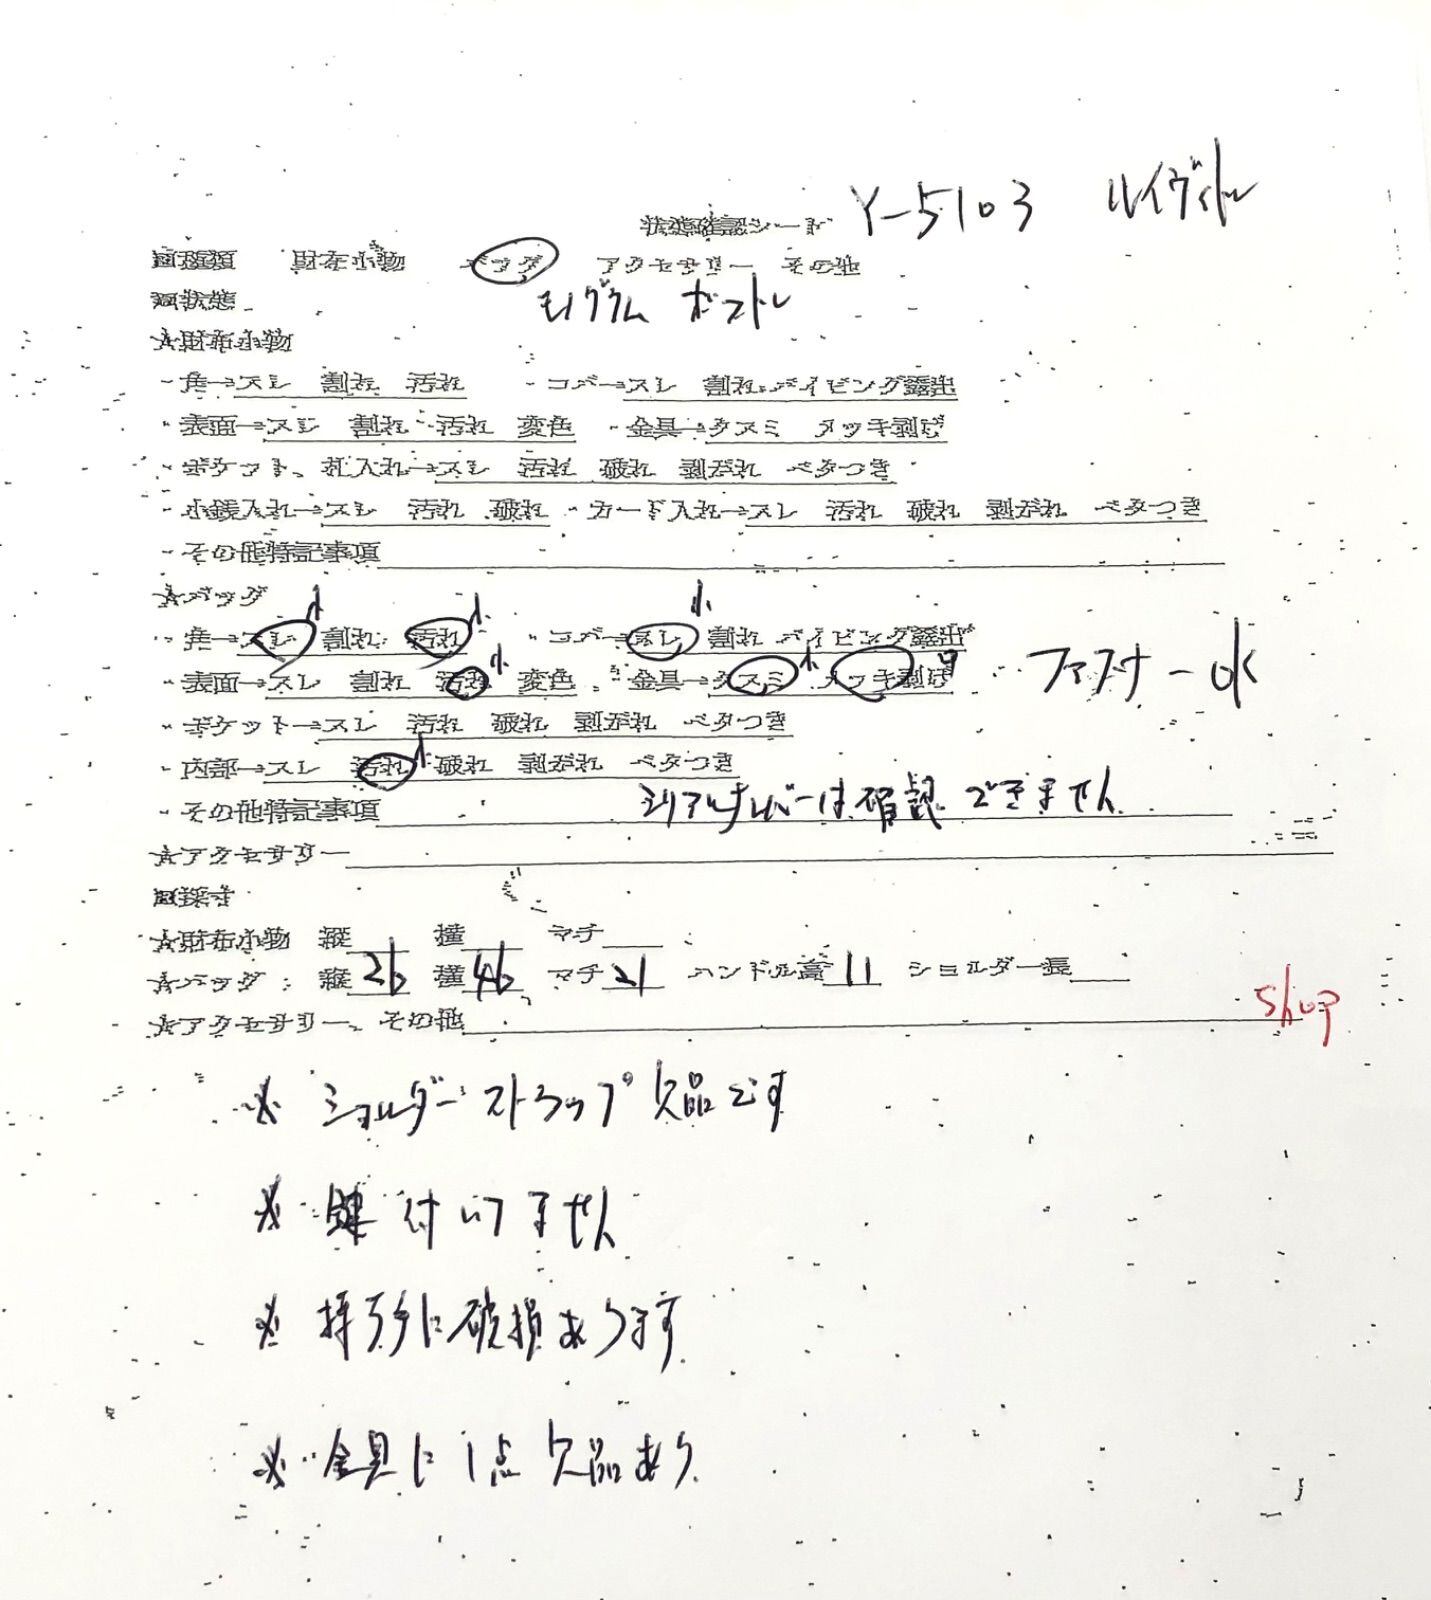 状態確認シート Y-5103 ルイヴィトン
回種類 財布小物 バッグ アクセサリー その他
回状態 モノグラム ボストン
☆財布小物
・角→スレ 割れ 汚れ ・コバ→スレ 割れ パイピング露出
・表面→スレ 割れ 汚れ 変色 ・金具→クスミ メッキ剥げ
・ポケット、札入れ→スレ 汚れ 破れ 剥がれ ベタつき
・小銭入れ→スレ 汚れ 破れ ・カード入れ→スレ 汚れ 破れ 剥がれ ベタつき
・その他特記事項
☆バッグ
・角→スレ小 割れ 汚れ小 ・コバ→スレ小 割れ パイピング露出
・表面→スレ 割れ 汚れ小 変色 ・金具→クスミ小 メッキ剥げ ファスナーOK
・ポケット→スレ 汚れ 破れ 剥がれ ベタつき
・内部→スレ 汚れ小 破れ 剥がれ ベタつき
・その他特記事項 シリアルナンバーは確認できません
☆アクセサリー
回採寸
☆財布小物 縦 横 マチ
☆バッグ: 縦26 横46 マチ21 ハンドル高11 ショルダー長
☆アクセサリー、その他 shop
※ ショルダーストラップ欠品です
※ 鍵付いてません
※ 持ち手に破損あります
※ 金具に1点欠品あり